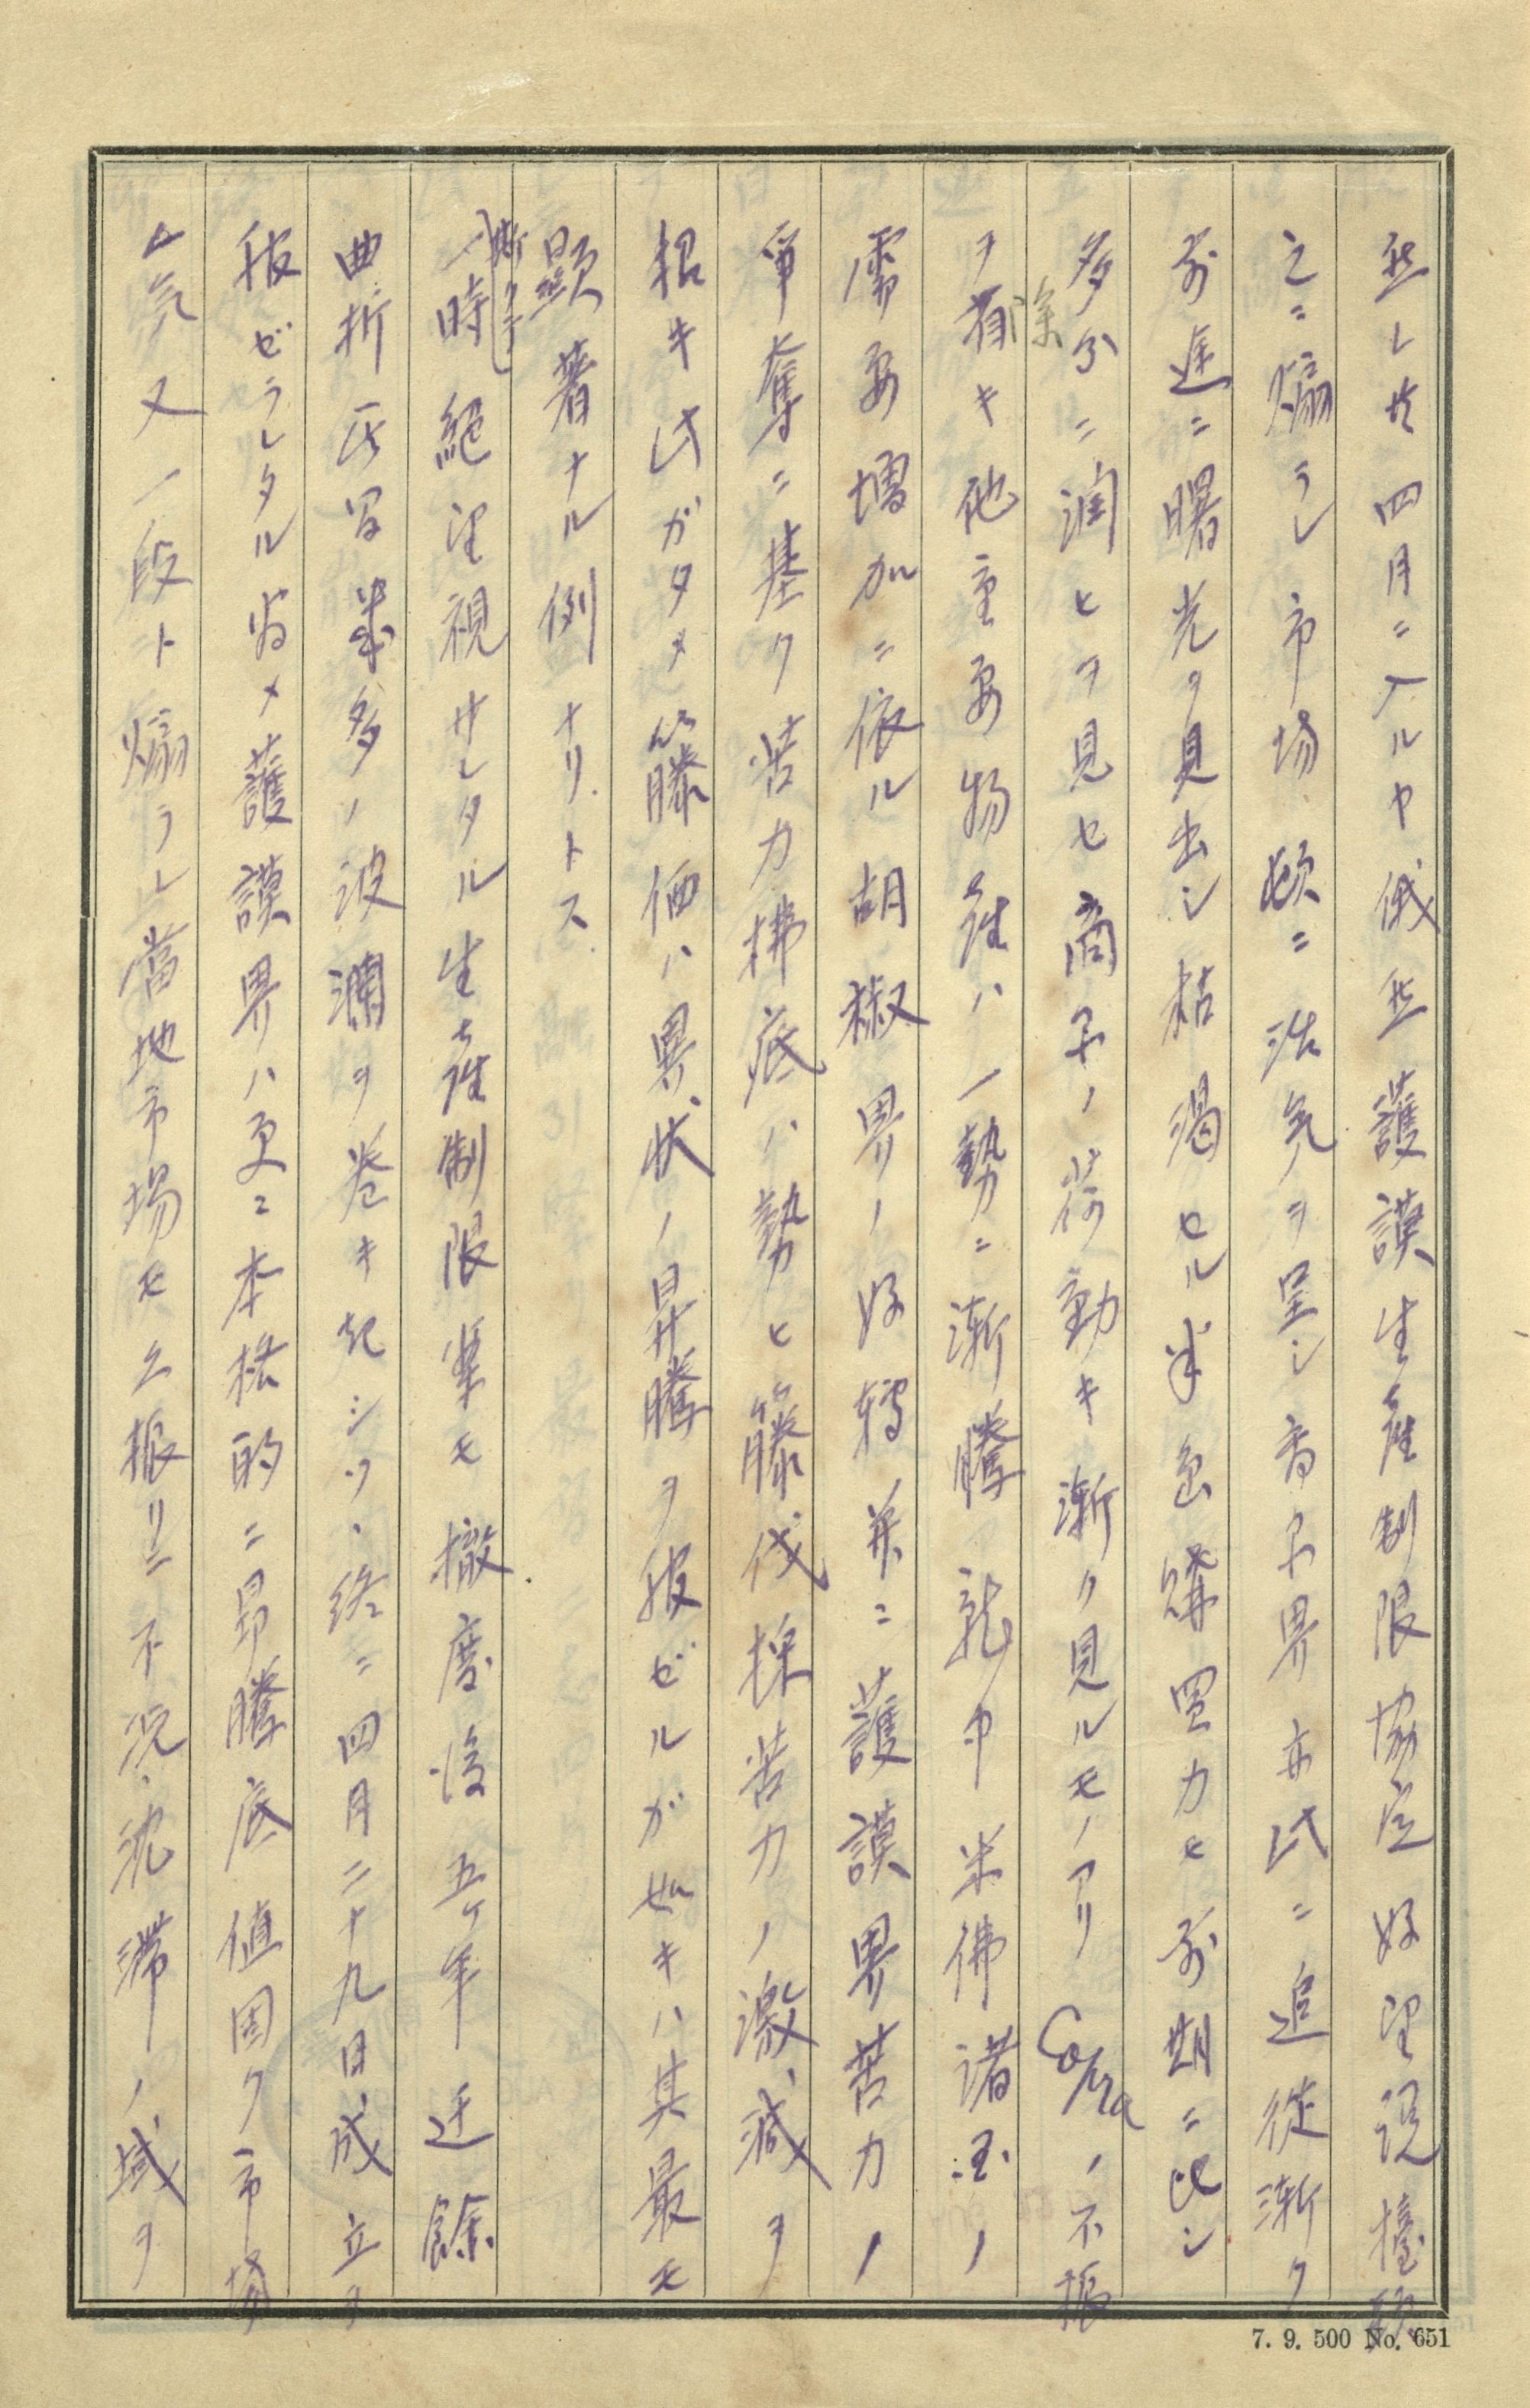 然レ共四月ニ入ルヤ俄然護謨生産制限協定好望説擡頭
之ニ煽ラレ市場頓ニ活気ヲ呈シ商界亦此ニ追従漸ク
前途ニ曙光ヲ見出シ枯渇セル半島購買力モ前期ニ比シ
多分ニ潤ヒヲ見セ商品ノ荷動キ漸ク見ルモノアリ Copraノ不振
ヲ除キ他重要物産ハ一勢ニ漸騰 就中米佛諸国ノ
需要増加ニ依ル胡椒界ノ好転並ニ護謨界苦力ノ
争奪ニ基ク苦力拂底ハ勢ヒ籐伐採苦力ノ激減ヲ
招キ此ガタメ籐価ハ異状ノ昇騰ヲ報ゼルガ如キハ其最モ
顕著ナル例ナリトス
斯クテ一時絶望視サレタル生産制限案モ撤廃後五ケ年近餘
曲折此間幾多ノ波瀾ヲ巻キ起シツヽ終ニ四月二十九日成立ヲ
報ゼラレタル為メ護謨界ハ更ニ本格的ニ昂騰底値固ク市場
人気又一段ト煽ラレ當地市場モ久振リニ不況、沈滞ノ域ヲ
7. 9. 500 No. 651